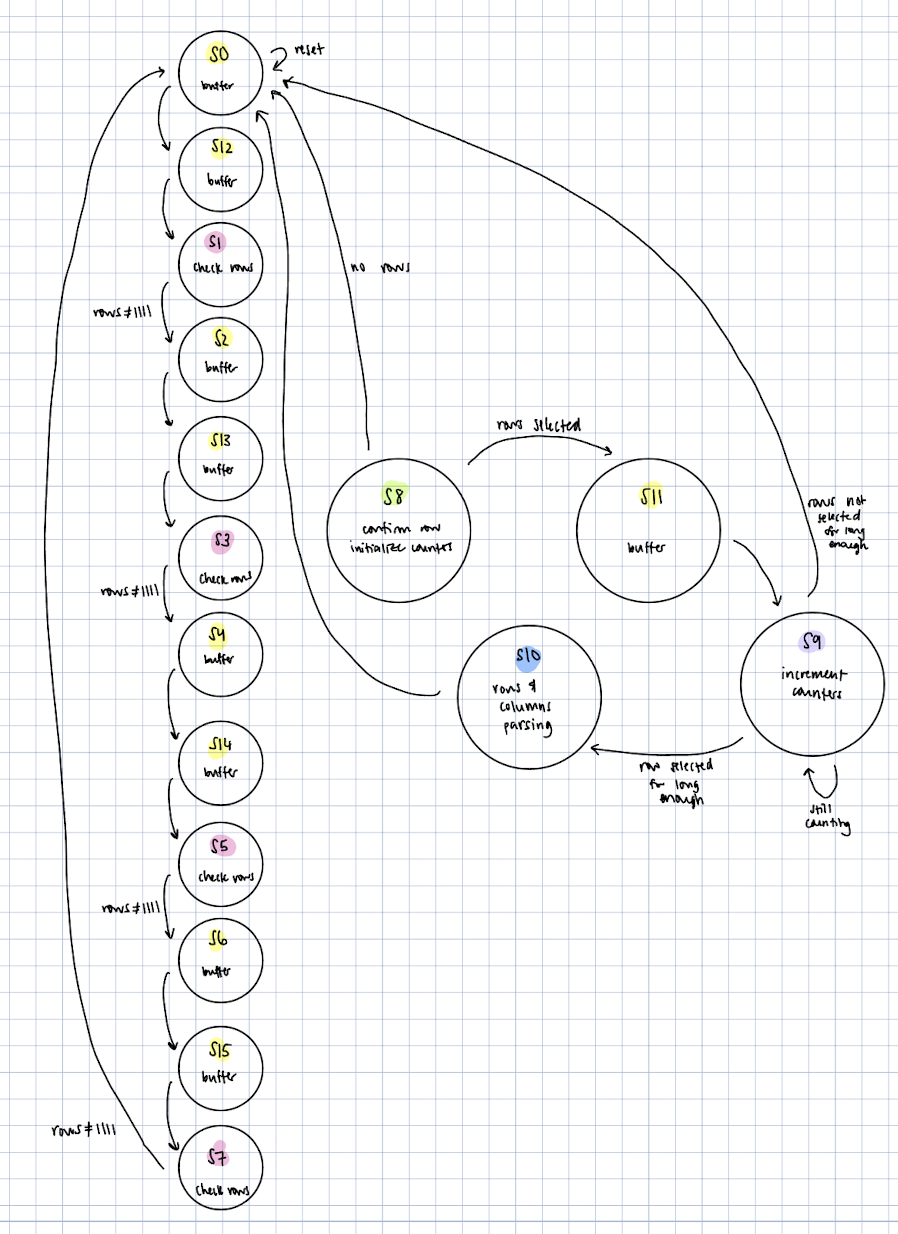 S0
buffer
reset
S12
buffer
S1
check rows
rows≠1111
S2
buffer
S13
buffer
S3
check rows
rows≠1111
S4
buffer
S14
buffer
S5
check rows
rows≠1111
S6
buffer
S15
buffer
rows≠1111
S7
check rows
no rows
S8
confirm row
initialize counters
rows selected
S11
buffer
rows not
selected
for long
enough
S9
increment
counters
still
counting
row selected
for long
enough
S10
rows &
columns
parsing